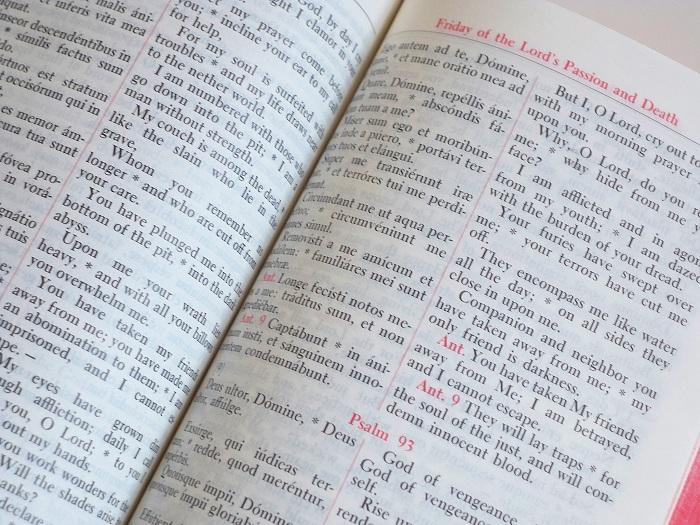 malis áni-
et inferis vita mea
nseor descendéntibus in
* símilis factus sum
stratum
occisórum qui in
es memor ám-
cura tua sunt
fóvea pro-
in vorá-
gnátio
tuis
God, by day I
night I clamor in
my prayer come
you; * incline your ear to my call
for help.
For my soul is surfeited with
troubles * and my life draws near
to the nether world.
I am numbered with those who
go down into the pit; * I am a
man without strength.
My couch is among the dead,
like the slain who lie in the
grave,
Whom you remember no
longer * and who are cut off from
your care.
You have plunged me into the
bottom of the pit, * into the dark
abyss.
Upon me your wrath lies
heavy, * and with all your billows
you overwhelm me.
You have taken my friends
away from me; you have made me
an abomination to them; * I am
imprisoned, and I cannot
escape. —
My eyes have grown dim
through affliction; daily I call
you, O Lord; * to you I
out my hands.
you work wonders for the
Will the shades arise
thanks?
declare
Friday of the Lord's Passion and Death
Ego autem ad te, Dómine,
* et mane orátio mea ad
Quare, Dómine, repéllis áni-
meam, * abscóndis fá-
tuam a me?
Miser sum ego et moribún-
inde a púero, * portávi ter-
tuos et elángui.
Super me transiérunt iræ
* et terróres tui me perdi-
Circumdant me ut aqua per-
* circumvéniunt me
simul.
Removísti a me amícum et
* familiáres mei sunt
Ant. Longe fecísti notos me-
a me: tráditus sum, et non
Ant. 9 Captábunt * in áni-
iusti, et sánguinem inno-
condemnábunt.
Deus ultor, Dómine, * Deus
ultor, affúlge.
Exsúrge, qui iúdicas ter-
* redde, quod meréntur,
Quoúsque ímpii, Dómine
ímpii
But I, O Lord, cry out
with my morning prayer
upon you.
Why, O Lord, do you
me; * why hide from me
face?
I am afflicted and in agony
from my youth; * I am dazed
with the burden of your dread.
Your furies have swept over
me; * your terrors have cut me
off.
They encompass me like water
all the day; * on all sides they
close in upon me.
Companion and neighbor you
have taken away from me; * my
only friend is darkness.
Ant. You have taken My friends
away from Me; I am betrayed,
and I cannot escape.
Ant. 9 They will lay traps * for
the soul of the just, and will con-
demn innocent blood.
Psalm 93
God of vengeance
God of vengeance
self.
Rise up